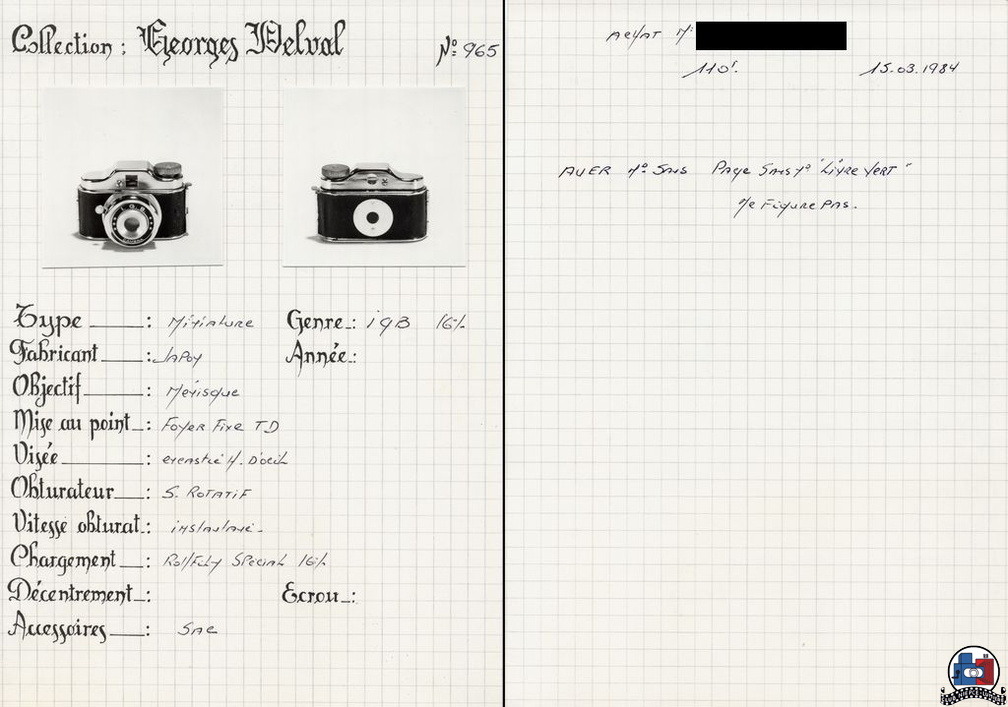 Collection : Georges Delval
N° 965
Type : Miniature
Genre : 16%
Fabricant : Japon
Année :
Objectif : Ménisque
Mise au point : Foyer Fixe TD
Visée : H. D'oeil
Obturateur : S. Rotatif
Vitesse obturat. :
Chargement : Rollfilm Special 16%
Décentrement :
Ecrou :
Accessoires : Sac
Achat M.
110F.
15.03.1984
N° Sans Page Sans N° "Livre Vert"
Ne Figure Pas.